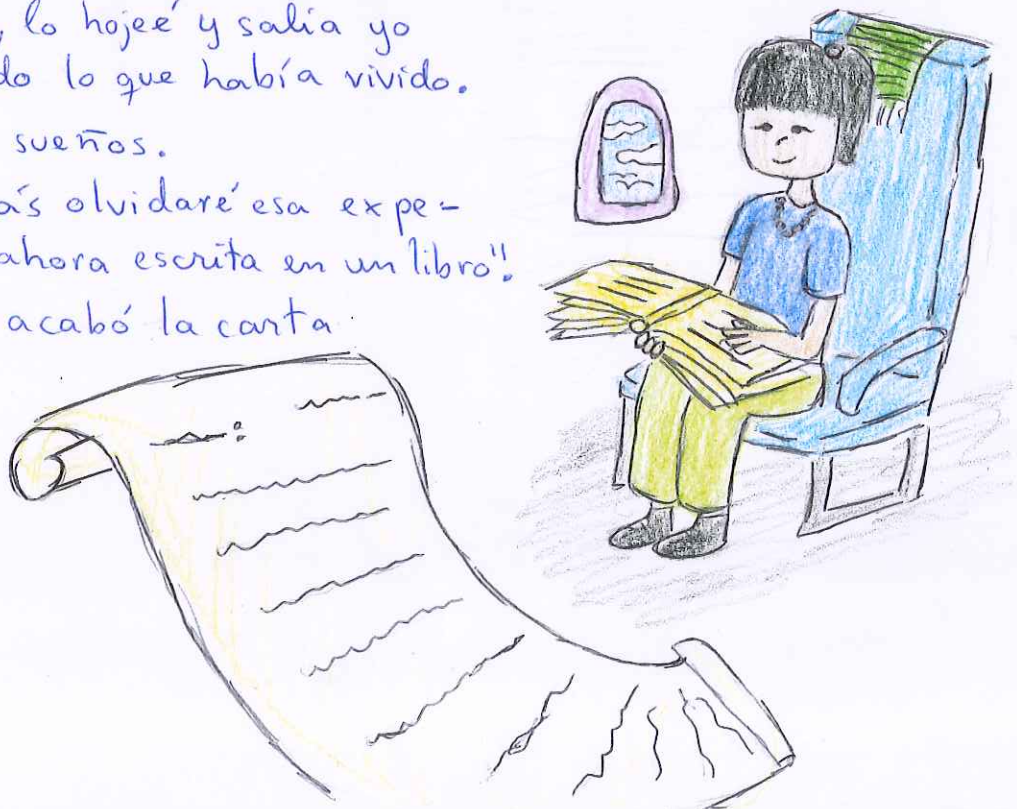 , lo hojeé y salía yo
do lo que había vivido.
sueños.
ás olvidaré esa expe-
ahora escrita en un libro!!
acabó la carta